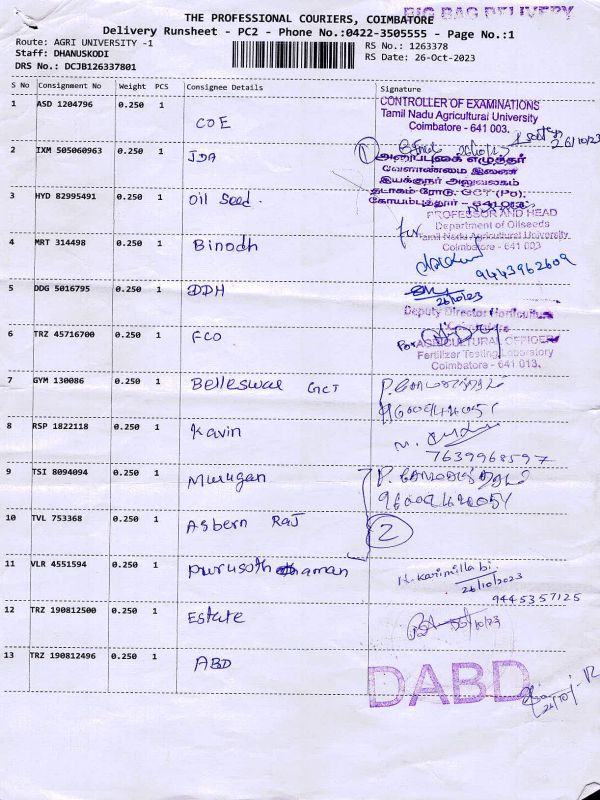 BIG BAG DELIVERY
THE PROFESSIONAL COURIERS, COIMBATORE
Delivery Runsheet - PC2 - Phone No.:0422-3505555 - Page No.:1
Route: AGRI UNIVERSITY -1
Staff: DHANUSKODI
DRS No.: DCJB126337801
RS No.: 1263378
RS Date: 26-Oct-2023
S No Consignment No Weight PCS Consignee Details Signature
1 ASD 1204796 0.250 1 COE
CONTROLLER OF EXAMINATIONS
Tamil Nadu Agricultural University
Coimbatore - 641 003.
26/10/23
2 IXM 505060963 0.250 1 JDA
1
26/10/23
அஞ்சுகை எழுத்தர்
வேளாண்மை இணை
இயக்குநர் அலுவலகம்
தடாகம் ரோடு, GCT (Po),
கோயம்புத்தூர் - 641 013.
3 HYD 82995491 0.250 1 Oil Seed.
PROFESSOR AND HEAD
Department of Oilseeds
Tamil Nadu Agricultural University
Coimbatore - 641 003
for
4 MRT 314498 0.250 1 Binodh
9443962609
5 DDG 5016795 0.250 1 DDH
26/10/23
Deputy Director Horticulture
6 TRZ 45716700 0.250 1 FCO
For
AGRICULTURAL OFFICER
Fertilizer Testing Laboratory
Coimbatore - 641 013.
7 GYM 130086 0.250 1 Belleswar GCT
8 RSP 1822118 0.250 1 Kavin
7639968597
9 TSI 8094094 0.250 1 Murugan
10 TVL 753368 0.250 1 Asbern Raj
2
11 VLR 4551594 0.250 1 Purusothaman
K. Karimilla bi
26/10/2023
9445357125
12 TRZ 190812500 0.250 1 Estate
26/10/23
13 TRZ 190812496 0.250 1 ABD
DABD